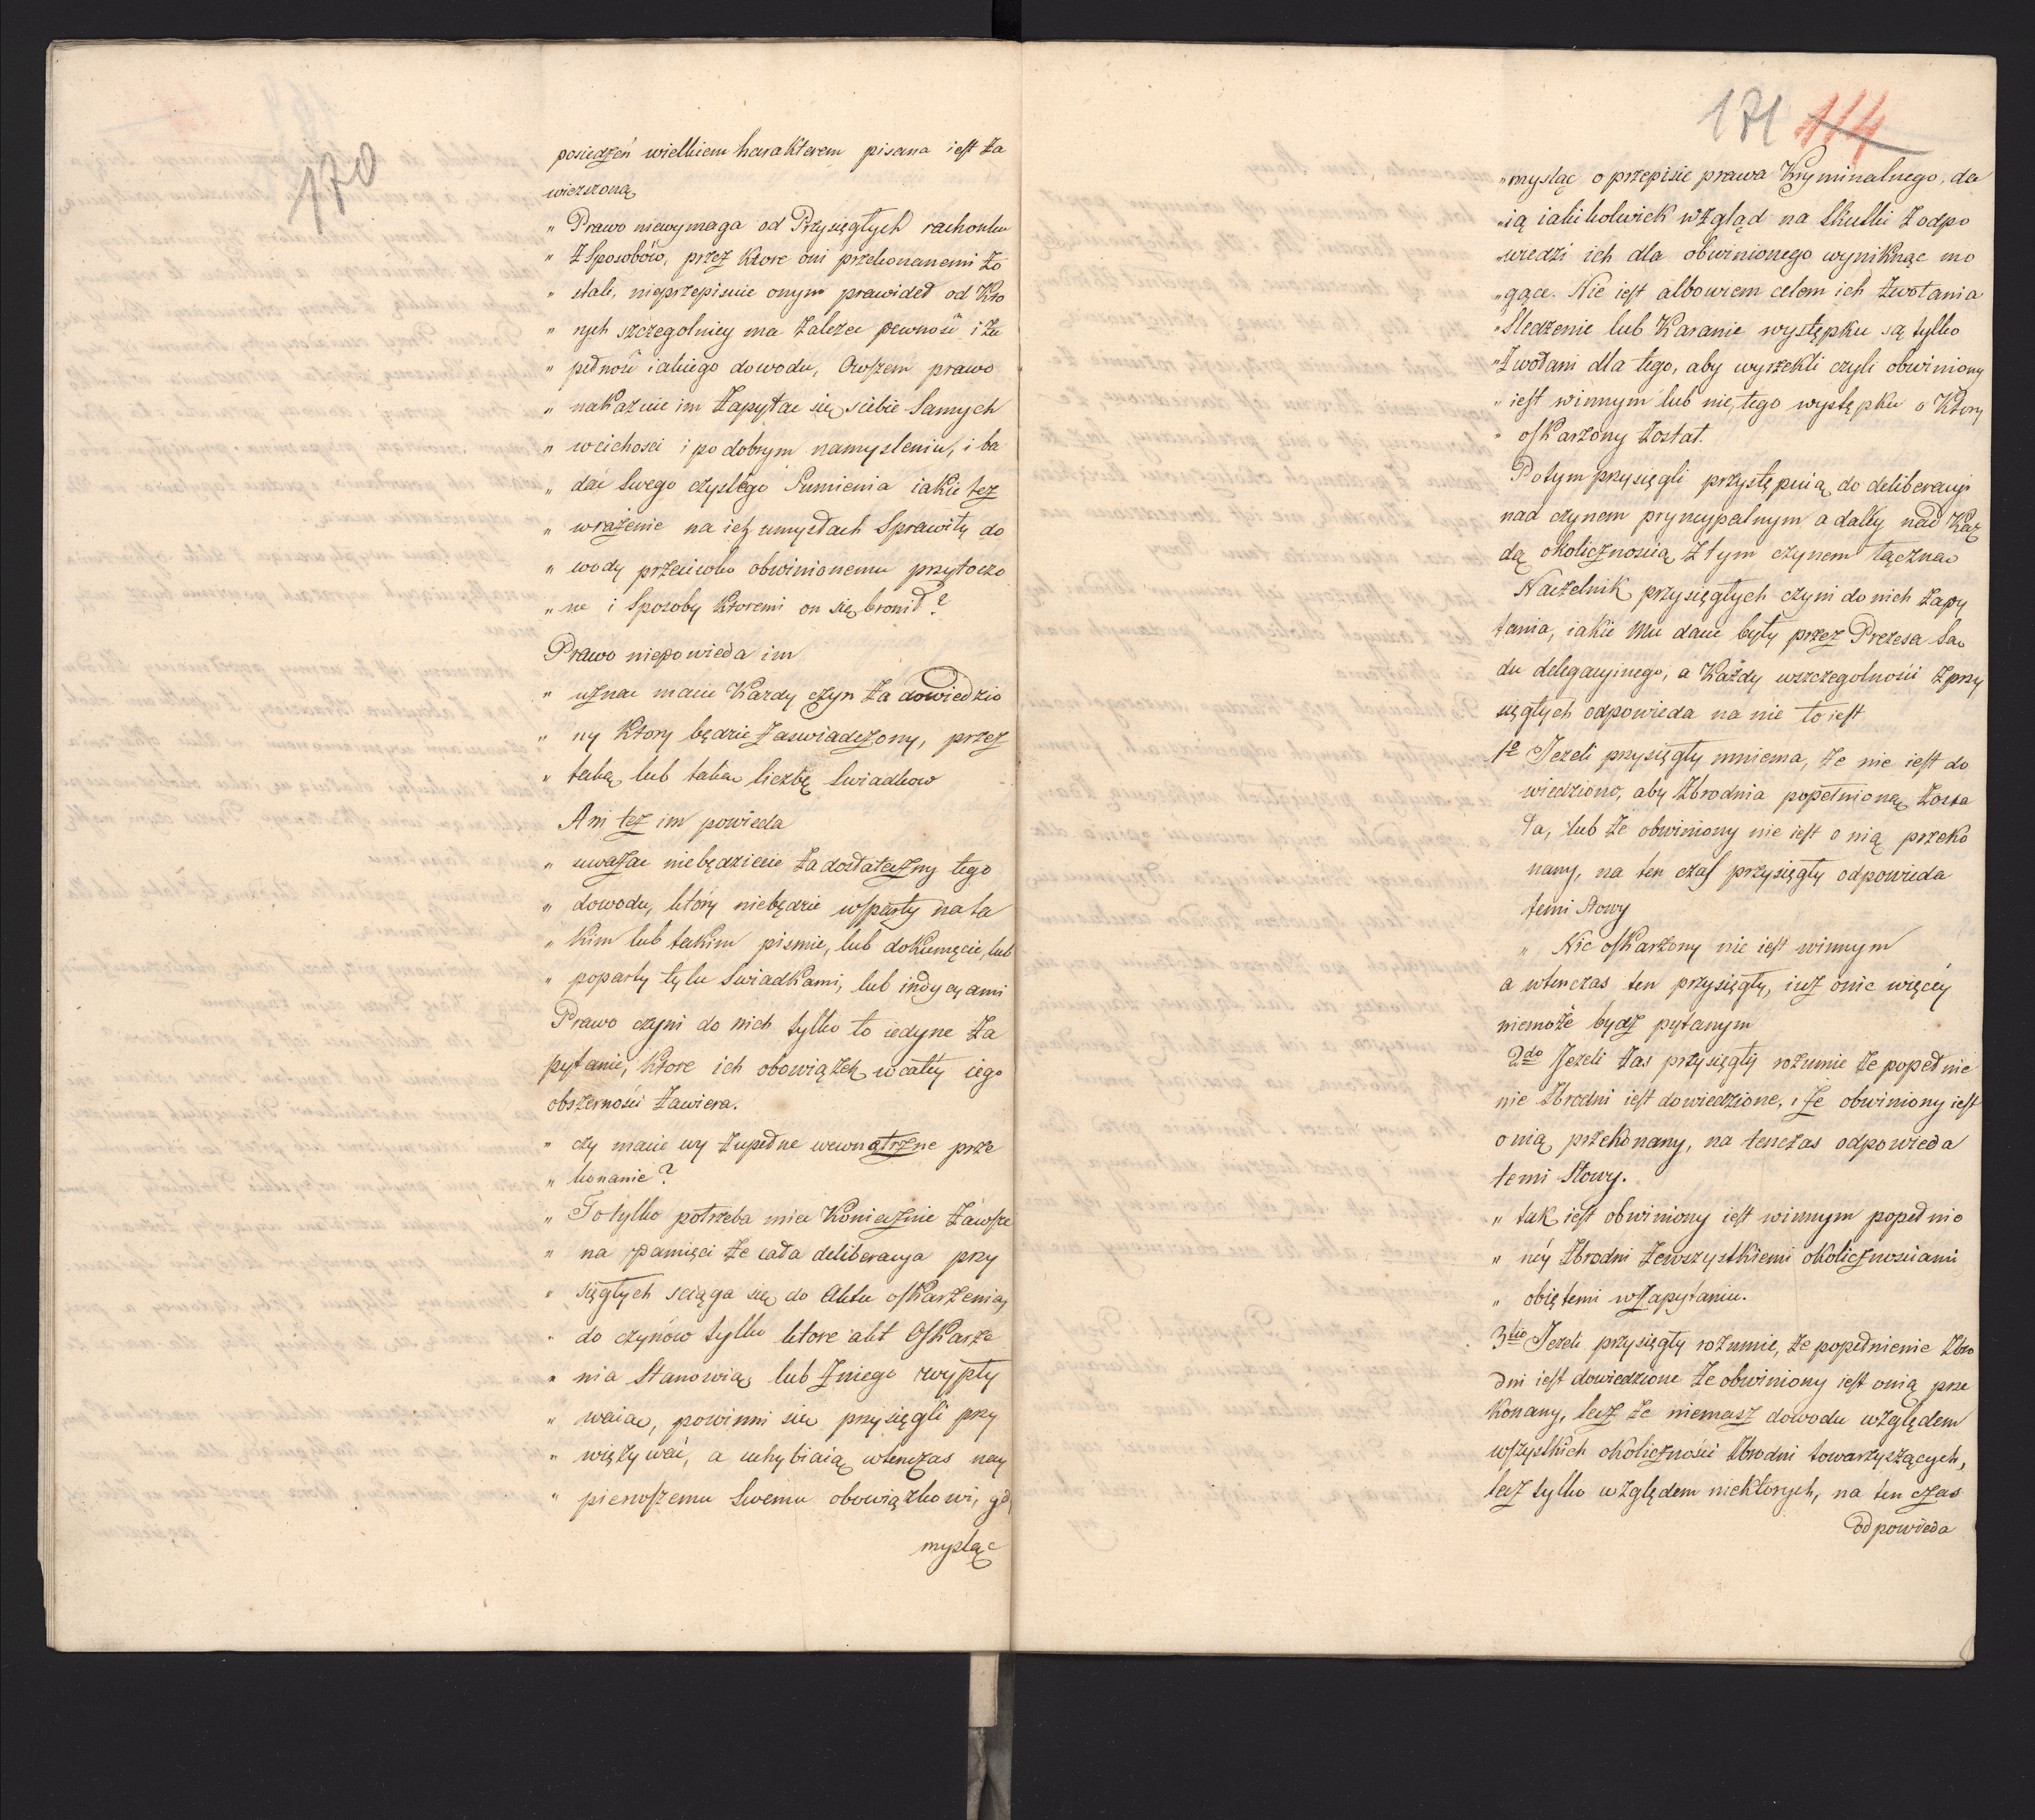 170
posiedzeń wielkiem harakterem pisana iest za
wieszoną
„ Prawo niewymaga od Przysięgłych rachonku
„ z Sposobów, przez ktore oni przekonanemi zo
„ stali, nieprzepisuie onym prawideł od kto
„ rych szczegolniey ma zalezec pewność i zu
„ pełność iakiego dowodu, Owszem prawo
„ nakazuie im zapytac się siebie samych
„ w cichosci i po dobrym namysleniu, i ba
„ dać swego czystego Sumienia iakie tez
„ wrażenie na ich umysłach Sprawiły do
„ wody przeciwko obwinionemu przytoczo
„ ne i Sposoby ktoremi on się bronił?
Prawo niepowieda im
„ uznac macie Kazdy czyn za dowiedzio
„ ny ktory będzie zaswiadczony, przez
„ taką lub taka liczbę swiadkow
Ani tez im powieda
„ uwazac niebędziecie za dostateczny tego
„ dowodu, który niebędzie wsparty na ta
„ kim lub takim pismie, lub dokumęcie, lub
„ poparty tylu swiadkami, lub indycyami
Prawo czyni do nich tylko to iedyne za
pytanie, ktore ich obowiązek w całey iego
obszerności zawiera.
„ czy macie wy zupełne wewnątrzne prze
„ konanie?
„ To tylko potrzeba miec koniecznie zawsze
„ na pamięci ze cała deliberacya przy
„ sięgłych sciąga się do Aktu oskarzenia,
„ do czynów tylko ktore akt Oskarze
„ nia stanowią lub z niego wypły
„ waiac, powinni sie przysięgli przy
„ więzywać, a uchybiaią wtenczas nay
„ pierwszemu swemu obowiązkowi, gdy
mysląc
171 114
„ mysląc o przepisie prawa Kryminalnego, da
„ ią iakikolwiek wzgląd na skutki z odpo
„ wiedzi ich dla obwinionego wyniknąc mo
„ gące. Nie iest albowiem celem ich zwołania
„ Sledzenie lub Karanie występku są tylko
„ zwołani dla tego, aby wyrzekli czyli obwiniony
„ iest winnym lub nie, tego występku o ktory
„ oskarzony został.
Potym przysięgli przystępuią do deliberacyi
nad czynem pryncypalnym a daley nad Kaz
dą okolicznoscią z tym czynem łączna
Naczelnik przysięgłych czyni do nich zapy
tania, iakie mu dane były przez Prezesa Sa
du delegacyinego, a Każdy wszczegolności z przy
sięgłych odpowieda na nie to iest
1º Jezeli przysięgły mniema, ze nie iest do
wiedziono, aby zbrodnia popełnioną zosta
ła, lub ze obwiniony nie iest o nią przeko
nany, na ten czas przysięgły odpowieda
temi słowy
„ Nie oskarzony nie iest winnym
a wtenczas ten przysięgły, iuz o nic więcéy
niemoże bydz pytanym
2do Jezeli zas przysięgły rozumie ze popełnie
nie zbrodni iest dowiedzione, i ze obwiniony iest
o nią przekonany, na tenczas odpowieda
temi słowy.
„ tak iest obwiniony iest winnym popełnio
„ néy zbrodni zewszystkiemi okolicznosciami
„ obiętemi w zapytaniu.
3tio Jezeli przysięgły rozumie, ze popełnienie zbro
dni iest dowiedzione ze obwiniony iest o nią prze
konany, lecz ze niemasz dowodu względem
wszystkich okoliczności zbrodni towarzyszących,
lecz tylko względem niektorych, na ten czas
odpowieda